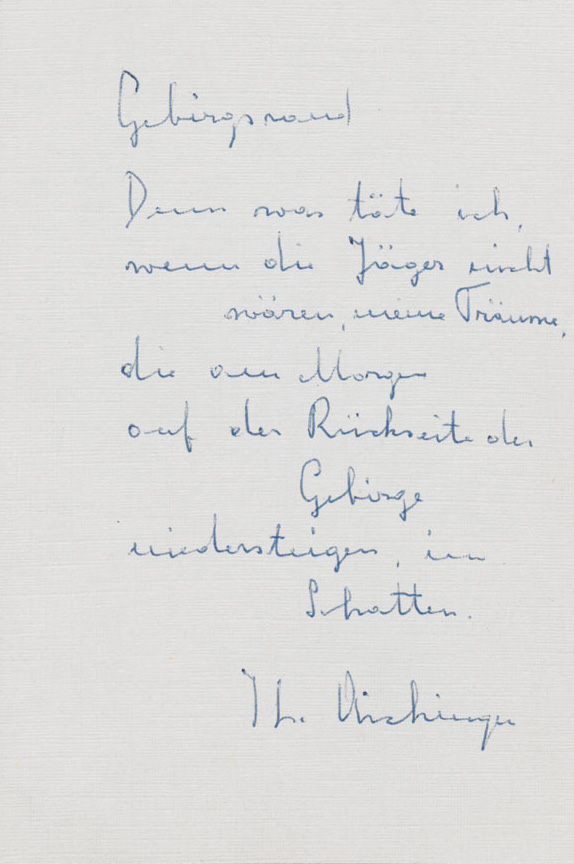 Gebirgsrand
Denn was täte ich,
wenn die Jäger nicht
wären, meine Träume,
die am Morgen
auf der Rückseite der
Gebirge
niedersteigen, im
Schatten.
Ilse Aichinger